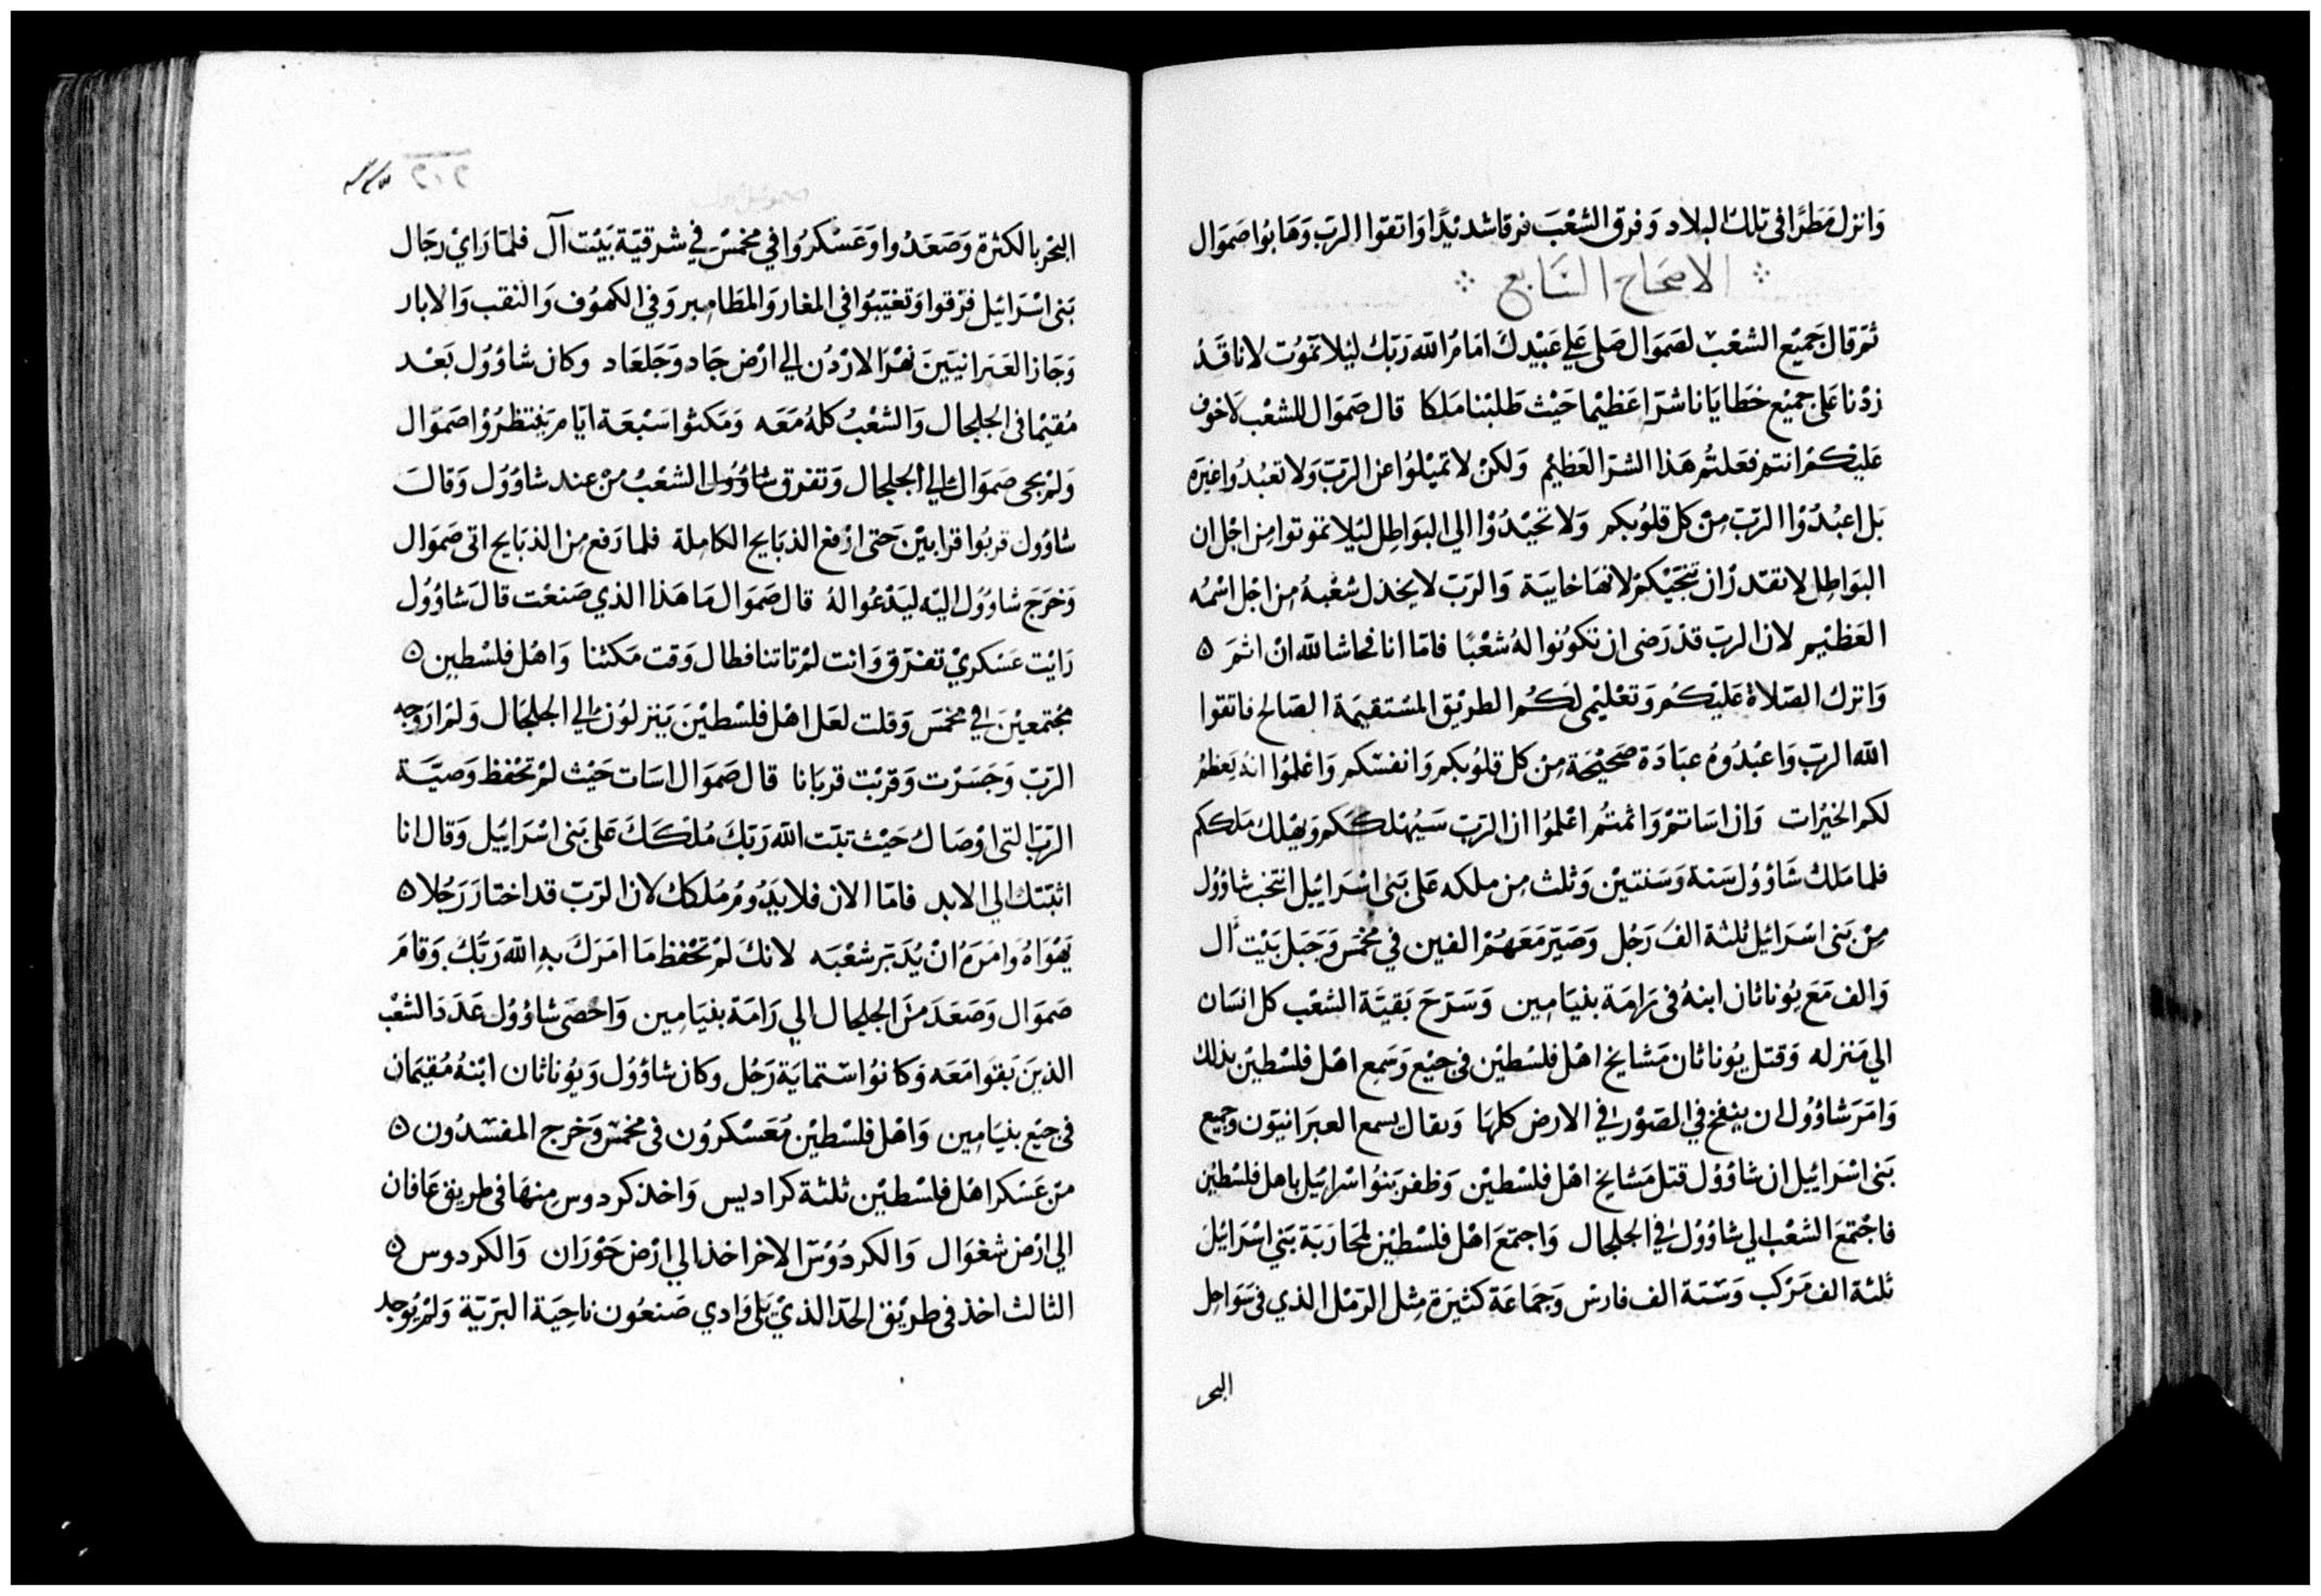 وَانزل مَطرًا فى تلك البلاد وَفرق الشعْبَ فرقا شديْدًا وَاتقوا الرب وَهَابُوا صموَال
الاصحَاح السَّابع
ثمّ قال جَميْع الشعْب لصَموَال صَلى علي عَبيْدك امَامرُ الله رَبّك ليْلا تموُت لانا قدْ
زدْنا عَلى جميْع خطايَانا شرّا عَظيْما حَيْث طلبْنا مَلكا قال صَموَال للشعْب لا خوْف
عَليْكمْ انتم فعَلتُم هَذا الشرّ العَظيْم وَلكنْ لا تميْلوُا عن الرَبّ وَلا تعبُدُوا غيْرَه
بَل اعبُدُوْا الرَبّ مِنْ كل قلوُبكم وَلا تحيْدُوْا الي البَواطِل ليْلا تموتوا مِن اجْل ان
البوَاطِل لا تقدرْ ان تنجّيْكمْ لانهَا خايبَة وَالرَبّ لا يخذل شعْبهُ مِن اجْل اسْمُه
العَظيْم لان الرب قدْ رَضى ان تكوُنوا لهُ شعْبًا فامّا انا فحَاشا لله انْ اثمَ ه
وَاترك الصّلاة عَليْكمُ وَتعْليْمى لكمُ الطريْق المسْتقيمَة الصَالح فاتقوا
الله الرب وَاعبُدُوهُ عبَادَة صَحيْحَة مِن كل قلوُبكم وَانفسكم وَاعْلموُا انهُ يَعظمُ
لكم الخيْرَات وَان اسَاتمْ وَاثمتُم اعْلموُا ان الرَبّ سَيُهْلككم وَيهْلك مَلككم
فلما مَلك شَاوُول سَنة وَسَنتيْن وَثلث مِن ملكه عَلى بَنى اسْرَائيل انتخب شاوُول
مِنْ بَنى اسْرَائيل ثلثة الفَ رَجُل وَصَيّر مَعَهُمْ الفين في مخمسَ وَجَبَل بَيْت ال
وَالف مَعَ يوُناثان ابنهُ فى رَامَة بنيَامِين وَسَرّحَ بَقيَّة الشعْب كل انسَان
الي مَنزله وَقتل يوُناثان مَشايخ اهْل فلسْطيْن فى جبْع وَسَمع اهْل فلسْطيْن بذلك
وَامَرَ شاوُول ان ينفخ في الصّوْر في الارض كلهَا وَيقال يسمع العبرَانيوّن وَجميع
بَنى اسْرَائيْل ان شاوُوْل قتل مَشايخ اهْل فلسْطيْن وَظفر بَنوُا اسْرَائيل باهل فلسْطيْن
فاجْتمَعَ الشعْب الي شاوُوُل في الجلجال وَاجتمَعَ اهْل فلسْطيْن لمحَارَبَة بَني اسْرَائيل
ثلثة الف مَرْكب وَسَتة الف فارس وَجَمَاعَة كثيرَة مِثل الرَمْل الذي فى سَوَاحِل
البحر
٢٠٢
البحْر بالكثرة وَصَعَدُوا وَعَسْكرُوا في مخمسْ في شرقيّة بَيْت آل فلمّا رَايْ رجَال
بَنى اسْرَائيل فرْقوا وَتغيّبُوا في المغار وَالمطامِير وَفي الكهوُف وَالنقب وَالابار
وَجَاز العَبرَانيين نهْرَ الارْدُن الي ارْض جَاد وَجَلعَاد وَكان شاوُوْل بَعْد
مُقيمًا فى الجلجال وَالشعْبُ كلهُ مَعَه وَمَكثوا سَبْعَة ايّام يَنتظرُوْا صَموَال
وَلمْ يجى صَموَال الي الجلجال وَتفرق شاوُوُل الشعْبُ مِنْ عند شاوُوُل وَقالَ
شاوُول قربُوا قرَابيْن حَتى ارْفع الذبَايح الكامِلة فلما رَفع مِن الذبَايح اتى صَموَال
وَخرَج شاوُوُل اليْه ليَدْعُوا لهُ قال صَموَال مَا هَذا الذي صَنعْت قالَ شاوُوُل
رَايْت عَسْكريْ تفرّق وَانت لمْ تاتنا فطال وَقت مَكثنا وَاهْل فلسْطين ه
مجتمعيْن في مخمَسَ وَقلت لعَل اهْل فلسْطيْنَ يَنزلوُن الي الجلجَال وَلمْ ارَ وَجه
الرَبّ وَجَسَرْت وَقربْت قربَانا قال صَموَال اسَات حَيْث لمْ تحْفظ وَصيّة
الرَبّ التى اوْصَاك حَيْث تبّت الله رَبّكَ مُلكَكَ عَلى بَنى اسْرَاييل وَقال انا
اثبّتك الي الابد فامّا الان فلا يَدُومُ مُلكك لان الرَبّ قد اختارَ رَجُلا ه
يَهْوَاهُ وَامَرَهُ انْ يُدَبّر شعْبَه لانكَ لمْ تحْفظ مَا امَرَكَ بهِ الله رَبّكُ وَقامَ
صَموَال وَصَعَدَ منَ الجلجال الي رَامَة بنيَامِين وَاحْصَى شاوُوُل عَدَدَ الشعْب
الذينَ بَقوَا مَعَه وَكانوُا ستمايَة رَجُل وَكان شاوُوُل وَيوُناثان ابْنهُ مُقيْمَان
فى جبْع بنيَامِين وَاهْل فلسْطيْن مُعَسْكروُن فى مخمسْ وَخرج المفسْدوُن ه
مِن عَسْكر اهْل فلسْطيْن ثلثة كراديس وَاخذ كردوس مِنهَا فى طريق عَافان
الي ارْض شغوَال وَالكردوُسّ الاخر اخذ الي ارْض حَوْرَان وَالكردوس ه
الثالث اخذ فى طريْق الحَدّ الذيْ يَلى وَادي صَنعُون ناحِيَة البَريّة وَلمْ يُوجد